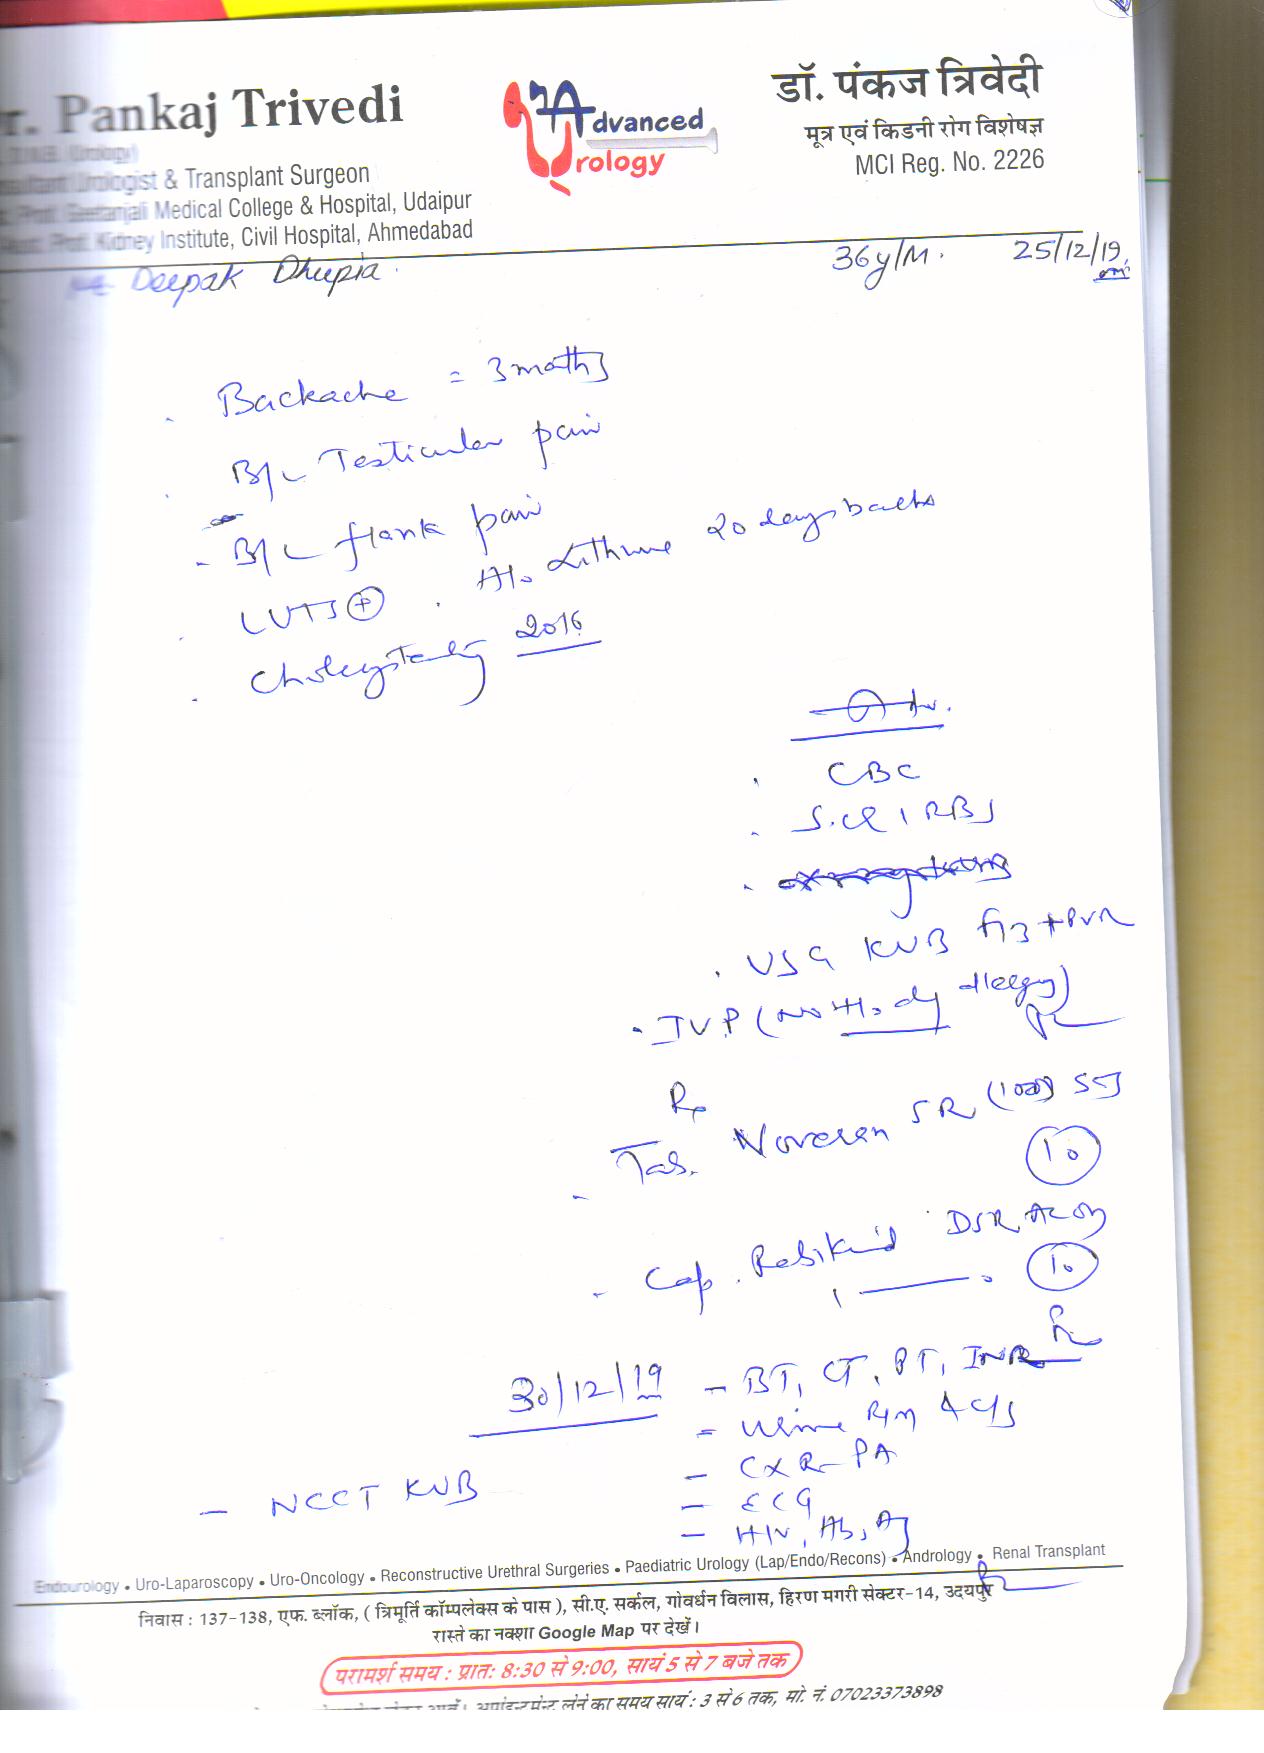 Dr. Pankaj Trivedi
(Urology)
Consultant Urologist & Transplant Surgeon
Prof. Geetanjali Medical College & Hospital, Udaipur
Prof. Kidney Institute, Civil Hospital, Ahmedabad
Advanced
Urology
डॉ. पंकज त्रिवेदी
मूत्र एवं किडनी रोग विशेषज्ञ
MCI Reg. No. 2226
Deepak Dhupia 36y/M. 25/12/19
Backache = 3 months
B/L Testicular pain
- B/L flank pain
LUTS ⊕ . H/o 20 days back
2016
Adv.
CBC
S.Cr, RBS
USG KUB + PVR
IVP (No H/o allergy)
Rx
- Tab. SR (100) SOS
10
- Cap. DSR
10
30/12/19 - BT, CT, PT, INR
= Urine R/M & C/S
- CXR-PA
- NCCT KUB - ECG
- HIV,
Endourology • Uro-Laparoscopy • Uro-Oncology • Reconstructive Urethral Surgeries • Paediatric Urology (Lap/Endo/Recons) • Andrology • Renal Transplant
निवास : 137-138, एफ. ब्लॉक, ( त्रिमूर्ति कॉम्पलेक्स के पास ), सी.ए. सर्कल, गोवर्धन विलास, हिरण मगरी सेक्टर-14, उदयपुर
रास्ते का नक्शा Google Map पर देखें।
परामर्श समय : प्रातः 8:30 से 9:00, सायं 5 से 7 बजे तक
अपॉइन्टमेन्ट लेने का समय सायं : 3 से 6 तक, मो. नं. 07023373898